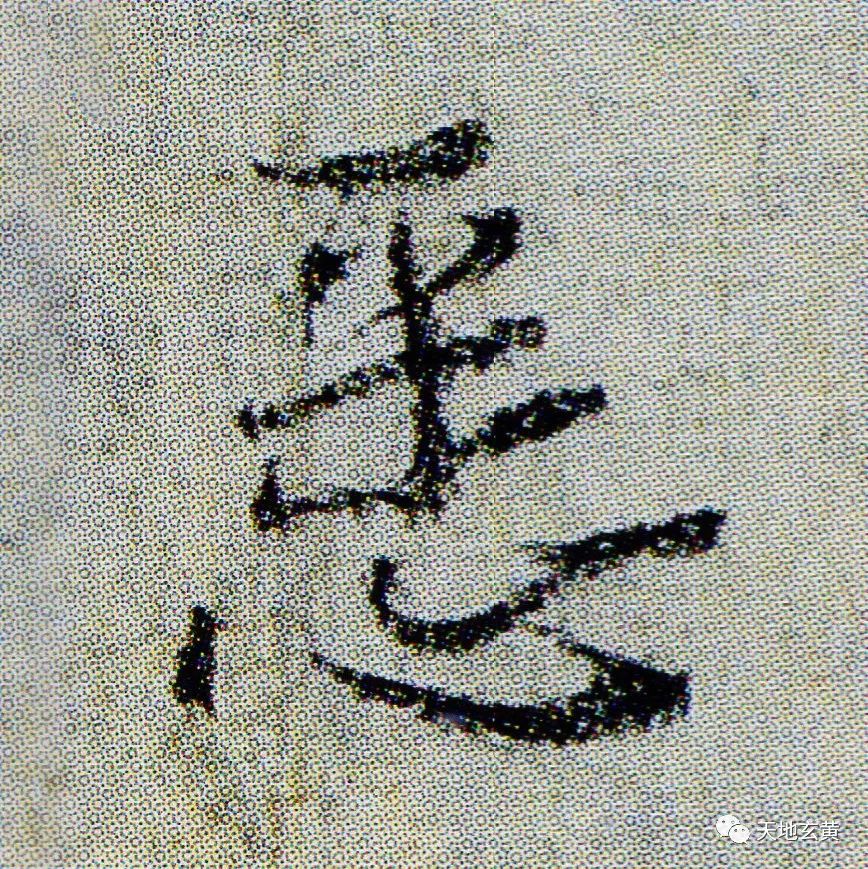 悉
天地玄黄